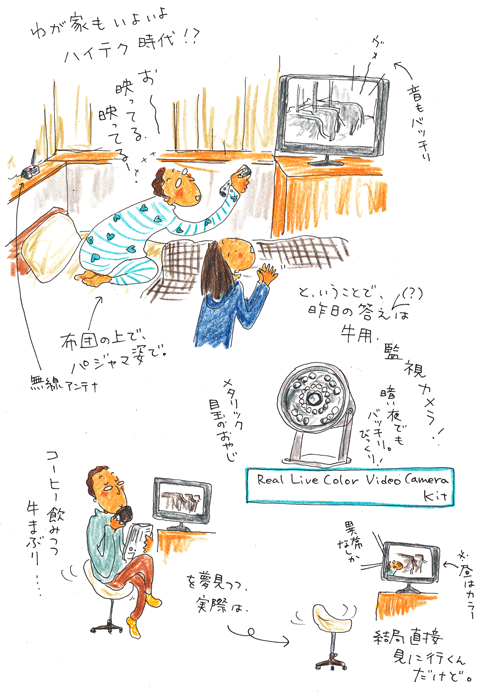 わが家もいよいよ
ハイテク時代!?
お〜
映ってる、
映ってる、!
ヴメ〜
音もバッチリ
無線アンテナ
布団の上で、
パジャマ姿で。
と、いうことで、(?)
昨日の答えは
牛用、
監視カメラ!
メタリック
目玉のおやじ
暗い夜でも
バッチリ。
びっくり!
Real Live Color Video Camera
Kit
コーヒー飲みつつ
牛まぶり....
を夢見つつ、
実際は、
果席
なしか
※昼はカラー
結局直接
見に行くん
だけど。